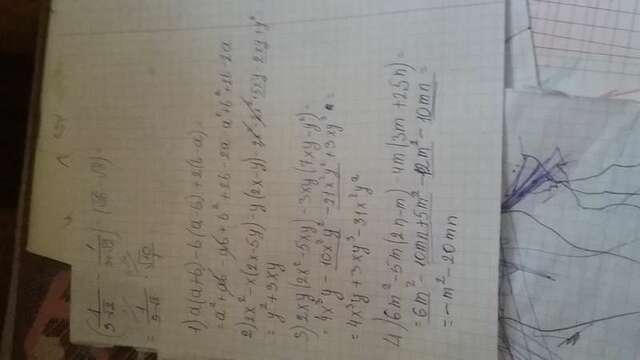 1) a(a+b)-b(a-b)+2(b-a)=
=a²+ab-ab+b²+2b-2a=a²+b²+2b-2a
2) 2x²-x(2x-5y)-y(2x-y)=2x²-2x²+5xy-2xy+y²=
=y²+3xy
3) 2xy(2x²-5xy)-3xy(7xy-y²)=
=4x³y-10x²y²-21x²y²+3xy³=
=4x³y+3xy³-31x²y²
4) 6m²-5m(2n-m)-4m(3m+2,5n)=
=6m²-10mn+5m²-12m²-10mn=
=-m²-20mn